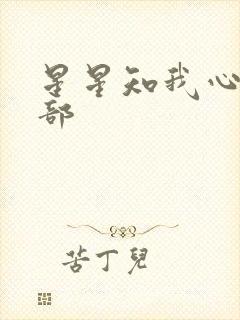 星星知我心
部
苦丁兒